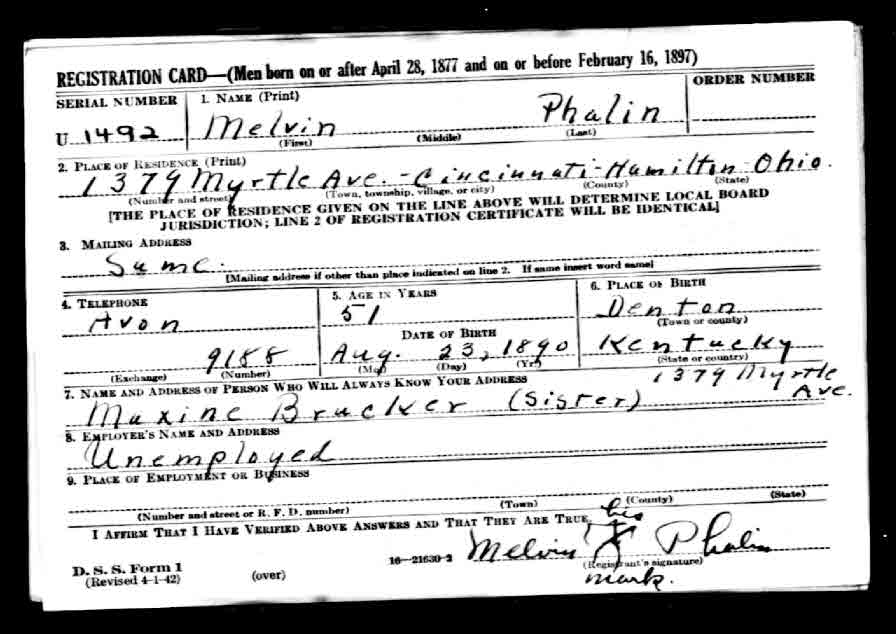 REGISTRATION CARD—(Men born on or after April 28, 1877 and on or before February 16, 1897)
SERIAL NUMBER 1. NAME (Print) ORDER NUMBER
U 1492 Melvin Phalin
(First) (Middle) (Last)
2. PLACE OF RESIDENCE (Print)
1379 Myrtle Ave.-Cincinnati-Hamilton-Ohio.
(Number and street) (Town, township, village, or city) (County) (State)
[THE PLACE OF RESIDENCE GIVEN ON THE LINE ABOVE WILL DETERMINE LOCAL BOARD
JURISDICTION; LINE 2 OF REGISTRATION CERTIFICATE WILL BE IDENTICAL]
3. MAILING ADDRESS
Same.
[Mailing address if other than place indicated on line 2. If same insert word same]
4. TELEPHONE 5. AGE IN YEARS 6. PLACE OF BIRTH
Avon 51 Denton
(Town or county)
DATE OF BIRTH
9188 Aug. 23, 1890 Kentucky
(Exchange) (Number) (Mo.) (Day) (Yr.) (State or country)
7. NAME AND ADDRESS OF PERSON WHO WILL ALWAYS KNOW YOUR ADDRESS 1379 Myrtle
Maxine Brucker (Sister) Ave.
8. EMPLOYER'S NAME AND ADDRESS
Unemployed
9. PLACE OF EMPLOYMENT OR BUSINESS
(Number and street or R. F. D. number) (Town) (County) (State)
I AFFIRM THAT I HAVE VERIFIED ABOVE ANSWERS AND THAT THEY ARE TRUE.
his
D. S. S. Form 1 16—21630-2 Melvin X Phalin
(Revised 4-1-42) (over) (Registrant's signature)
mark.